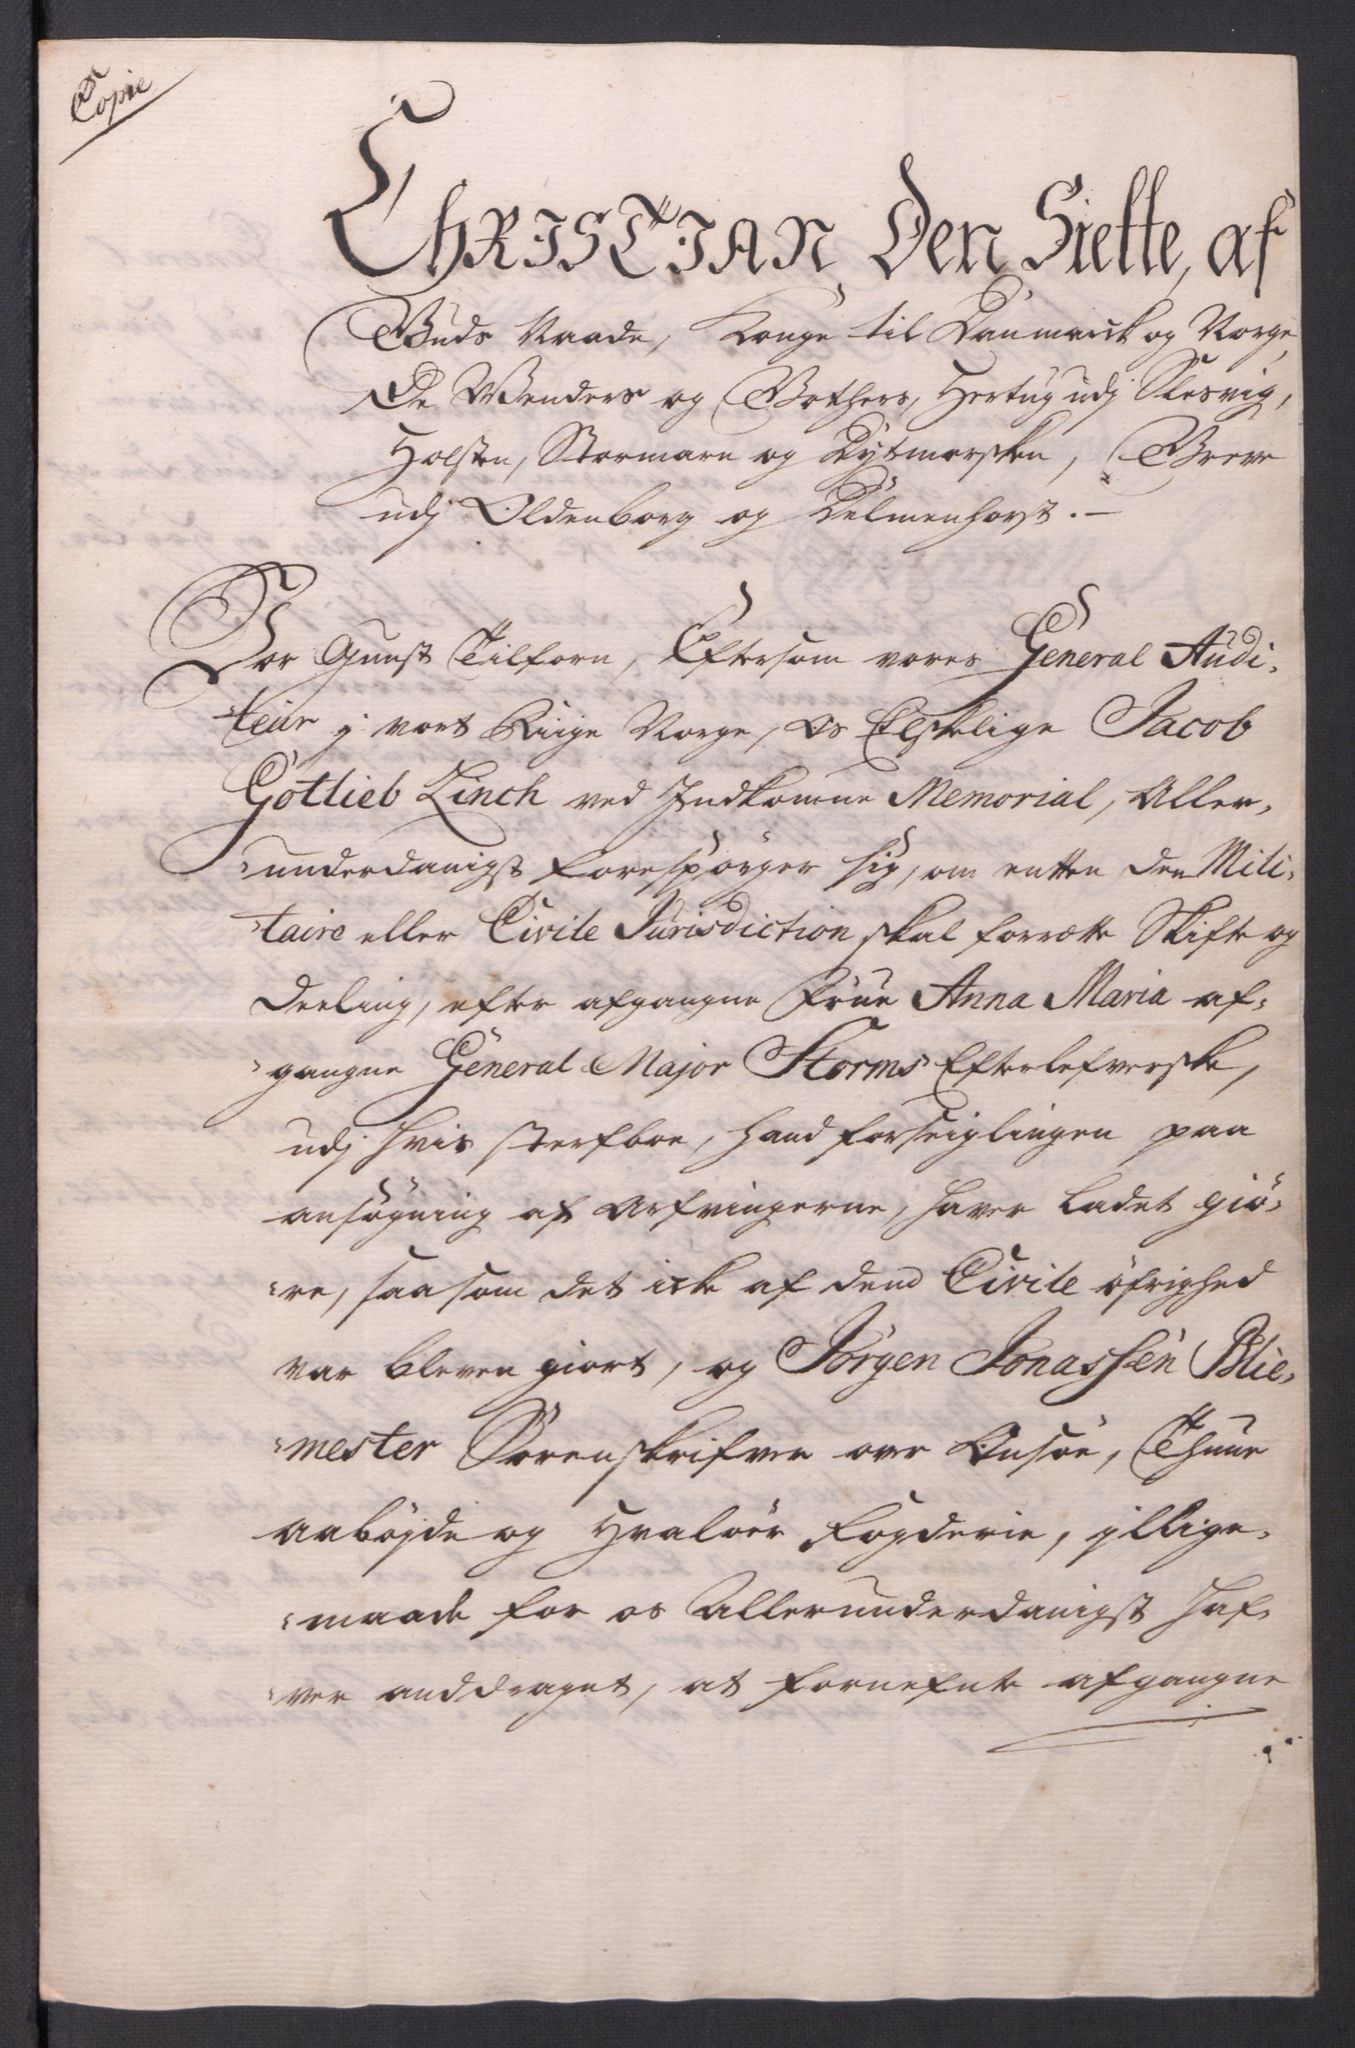 Copie
CHRISTIAN Den Siette, af
Guds Naade, Konge til Danmarck og Norge,
De Wenders og Gothers, Hertug udj Slesvig,
Holsten, Stormarn og Dytmersken, Greve
udj Oldenborg og Delmenhorst. –
Vor Gunst Tilforn, Eftersom vores General Audi-
-teur j vort Riige Norge, Os Elskelige Jacob
Gotlieb Linch ved Indkomne Memorial, Aller-
-underdanigst forespörger sig, om entten den Mili-
-taire eller Civile Jurisdiction skal forrette Skifte og
Deeling, efter afgangne Frue Anna Maria af-
-gangne General Major Storms Efterlefverske,
udj hvis sterfboe, hand forseiglingen paa
ansögning af Arfvingerne, haver ladet giö-
-re, saasom det icke af dend Civile öfrighed
var bleven giort, og Jörgen Jonassen Blie-
-mester Sorenskrifver over Onsöe, Thune
Aabögde og Hvalöer fogderie, jllige-
-maade for os Allerunderdanigst haf-
-ver anddraget, at fornefnte afgangne